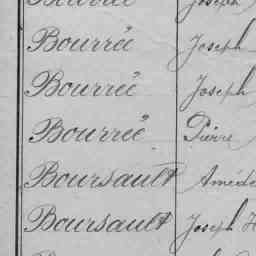 Bourrée Joseph
Bourrée Joseph
Bourrée Pierre
Boursault Amédé
Boursault Joseph H